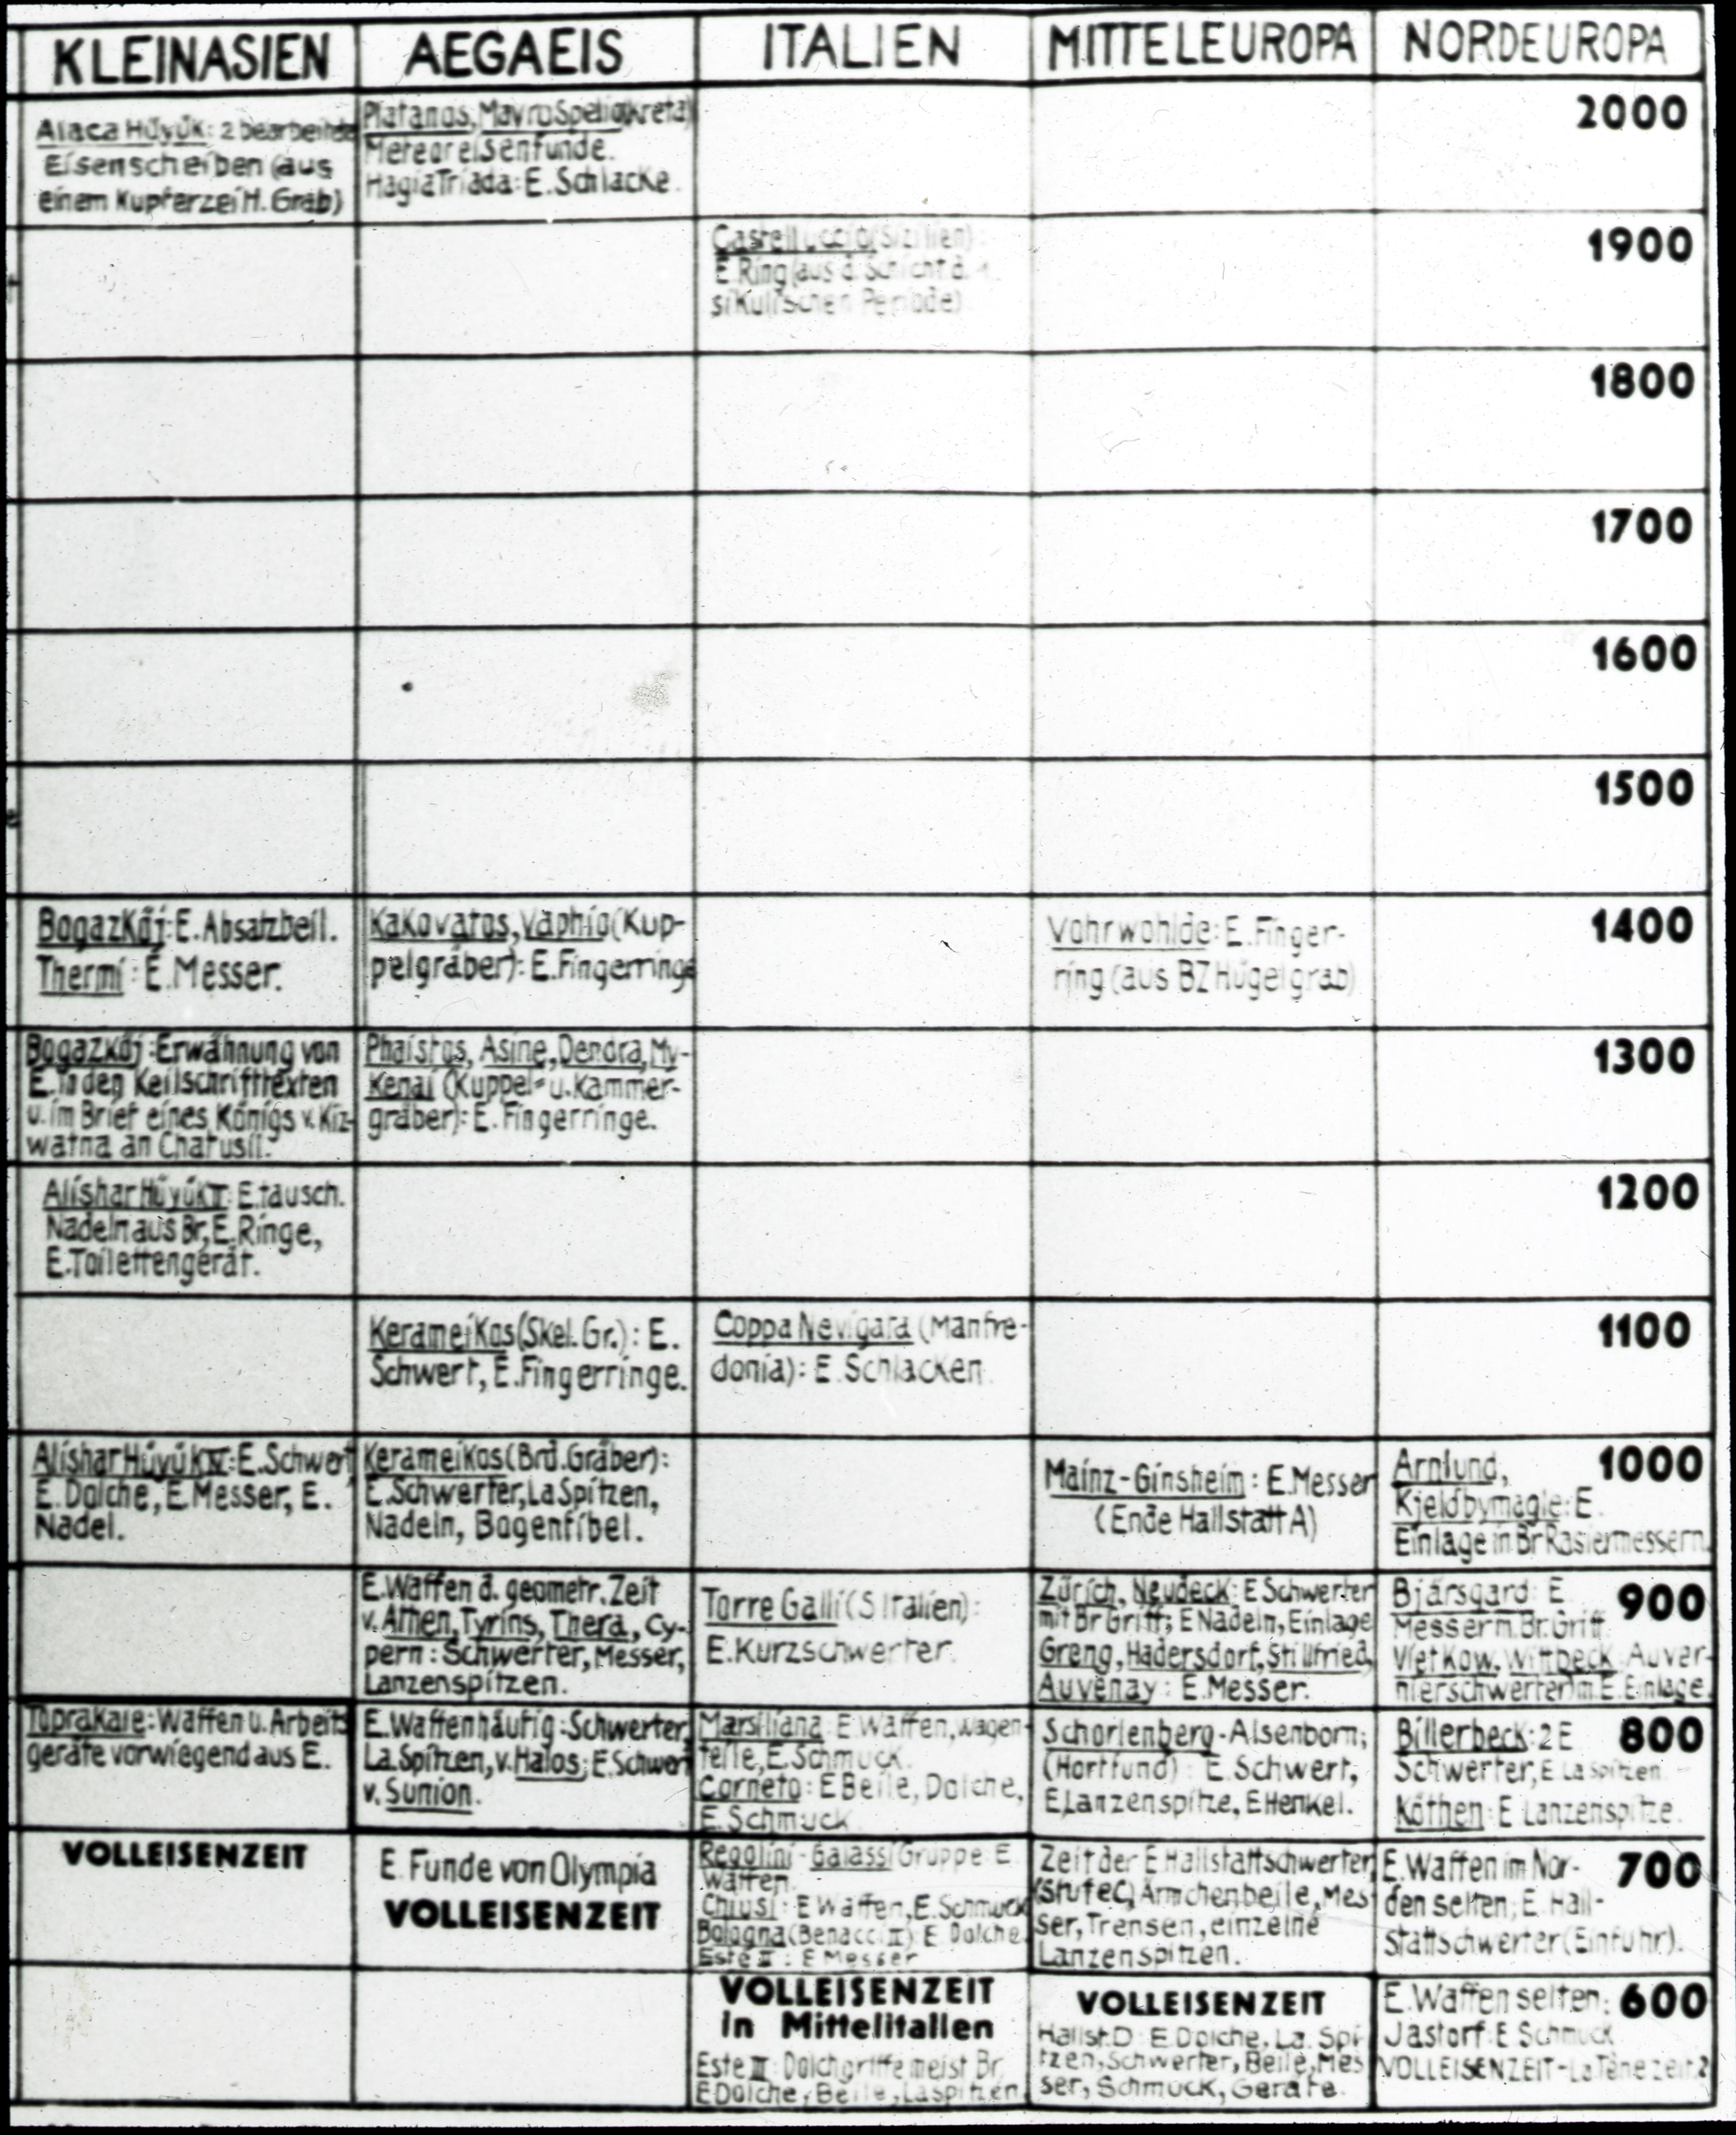 KLEINASIEN
AEGAEIS
ITALIEN
MITTELEUROPA
NORDEUROPA
Alaca Hüyük: 2 bearbeitete
Eisenscheiben (aus
einem Kupferzeitl. Grab)
Platanos, Mavro Spelio (Kreta)
Meteoreisenfunde.
Hagia Triada: E. Schlacke.
2000
Castelluccio (Sizilien):
E Ring (aus d. Schicht d. 1.
sikulischen Periode)
1900
1800
1700
1600
1500
Bogazköj: E. Absatzbeil.
Thermi: E. Messer.
Kakovatos, Vaphio (Kup-
pelgräber): E. Fingerringe
Vohrwohlde: E. Finger-
ring (aus BZ Hügelgrab)
1400
Bogazköj: Erwähnung von
E. in den Keilschrifttexten
u. im Brief eines Königs v. Kiz-
watna an Chatusil.
Phaistos, Asine, Dendra, My-
kenai (Kuppel- u. Kammer-
gräber): E. Fingerringe.
1300
Alishar Hüyük II: E. tausch.
Nadeln aus Br, E. Ringe,
E. Toilettengerät.
1200
Kerameikos (Skel. Gr.): E.
Schwert, E. Fingerringe.
Coppa Nevigata (Manfre-
donia): E. Schlacken.
1100
Alishar Hüyük IV: E. Schwert
E. Dolche, E Messer, E.
Nadel.
Kerameikos (Brd. Gräber):
E. Schwerter, La Spitzen,
Nadeln, Bogenfibel.
Mainz-Ginsheim: E. Messer
(Ende Hallstatt A)
Arnlund, 1000
Kjeldbymagle: E.
Einlage in Br Rasiermessern.
E. Waffen d. geometr. Zeit
v. Athen, Tyrins, Thera, Cy-
pern: Schwerter, Messer,
Lanzenspitzen.
Torre Galli (S Italien):
E. Kurzschwerter.
Zürich, Neudeck: E Schwerter
mit Br Griff; E Nadeln, Einlage
Greng, Hadersdorf, Stillfried,
Auvenay: E. Messer.
Bjärsgard: E. 900
Messer m. Br. Griff.
Vietkow, Wittbeck: Auver-
nierschwerter m E. Einlage.
Toprakale: Waffen u. Arbeits
geräte vorwiegend aus E.
E. Waffen häufig: Schwerter,
La. Spitzen, v. Halos; E. Schwert
v. Sunion.
Marsiliana: E Waffen, Wagen-
teile, E. Schmuck.
Corneto: E Beile, Dolche,
E. Schmuck
Schorlenberg-Alsenborn;
(Hortfund): E. Schwert,
E. Lanzenspitze, E Henkel.
Billerbeck: 2 E 800
Schwerter, E La Spitzen.
Köthen: E Lanzenspitze.
VOLLEISENZEIT
E. Funde von Olympia
VOLLEISENZEIT
Regolini-Galassi Gruppe E
Waffen.
Chiusi: E Waffen, E. Schmuck
Bologna (Benacci II) E Dolche
Este II: E Messer
Zeit der E Hallstattschwerter,
(Stufe C), Ärmchenbeile, Mes
ser, Trensen, einzelne
Lanzenspitzen.
E. Waffen im Nor- 700
den selten; E. Hall-
stattschwerter (Einfuhr).
VOLLEISENZEIT
in Mittelitalien
Este III: Dolchgriffe meist Br
E Dolche, Beile, Laspitzen
VOLLEISENZEIT
Hallst. D: E Dolche, La. Spi-
tzen, Schwerter, Beile, Mes
ser, Schmuck, Geräte.
E. Waffen selten; 600
Jastorf: E Schmuck
VOLLEISENZEIT - La Tène zeit 2